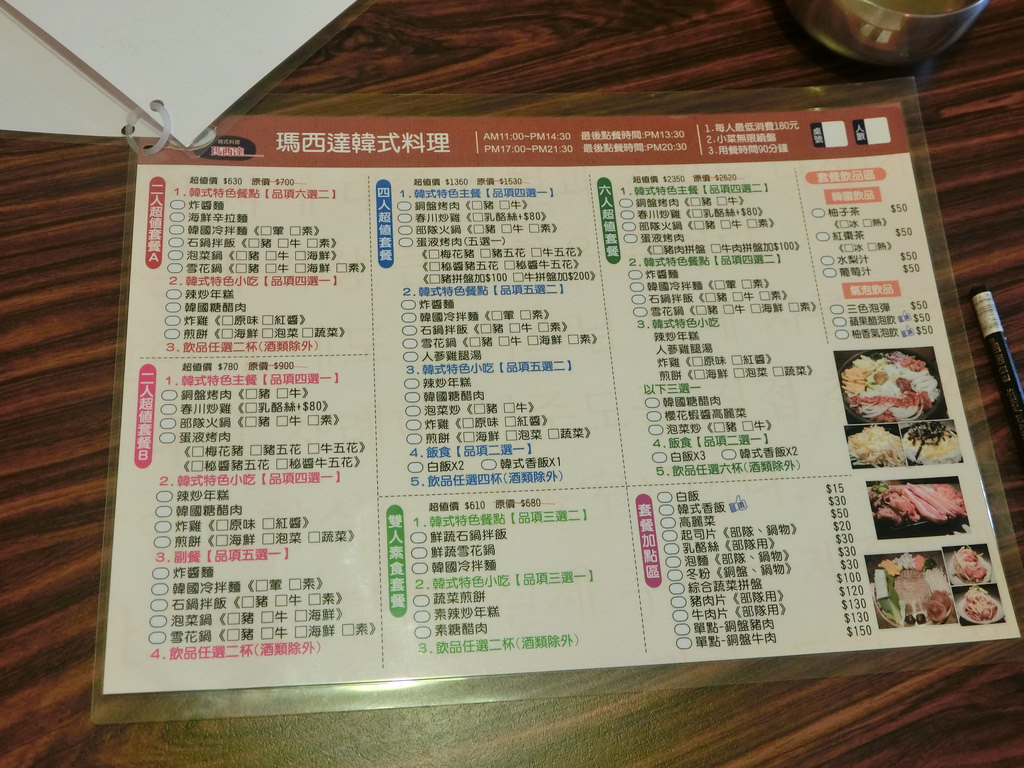 韓式料理
瑪西達
瑪西達韓式料理
AM11:00~PM14:30 最後點餐時間:PM13:30
PM17:00~PM21:30 最後點餐時間:PM20:30
1.每人最低消費180元
2.小菜無限續盤
3.用餐時間90分鐘
桌號
人數
二人超值套餐A
超值價 $630 原價 $700
1.韓式特色餐點【品項六選二】
炸醬麵
海鮮辛拉麵
韓國冷拌麵《□葷 □素》
石鍋拌飯《□豬 □牛 □素》
泡菜鍋《□豬 □牛 □海鮮》
雪花鍋《□豬 □牛 □海鮮 □素》
2.韓式特色小吃【品項四選一】
辣炒年糕
韓國糖醋肉
炸雞《□原味 □紅醬》
煎餅《□海鮮 □泡菜 □蔬菜》
3.飲品任選二杯(酒類除外)
二人超值套餐B
超值價 $780 原價 $900
1.韓式特色主餐【品項四選一】
銅盤烤肉《□豬 □牛》
春川炒雞《□乳酪絲+$80》
部隊火鍋《□豬 □牛 □素》
蛋液烤肉
《□梅花豬 □豬五花 □牛五花》
《□秘醬豬五花 □秘醬牛五花》
2.韓式特色小吃【品項四選一】
辣炒年糕
韓國糖醋肉
炸雞《□原味 □紅醬》
煎餅《□海鮮 □泡菜 □蔬菜》
3.副餐【品項五選一】
炸醬麵
韓國冷拌麵《□葷 □素》
石鍋拌飯《□豬 □牛 □素》
泡菜鍋《□豬 □牛 □海鮮》
雪花鍋《□豬 □牛 □海鮮 □素》
4.飲品任選二杯(酒類除外)
四人超值套餐
超值價 $1360 原價 $1530
1.韓式特色主餐【品項四選一】
銅盤烤肉《□豬 □牛》
春川炒雞《□乳酪絲+$80》
部隊火鍋《□豬 □牛 □素》
蛋液烤肉(五選一)
《□梅花豬 □豬五花 □牛五花》
《□秘醬豬五花 □秘醬牛五花》
《□豬拼盤加$100 □牛拼盤加$200》
2.韓式特色餐點【品項五選二】
炸醬麵
韓國冷拌麵《□葷 □素》
石鍋拌飯《□豬 □牛 □素》
雪花鍋《□豬 □牛 □海鮮 □素》
人參雞腿湯
3.韓式特色小吃【品項五選二】
辣炒年糕
韓國糖醋肉
泡菜炒《□豬 □牛》
炸雞《□原味 □紅醬》
煎餅《□海鮮 □泡菜 □蔬菜》
4.飯食【品項二選一】
白飯X2 韓式香飯X1
5.飲品任選四杯(酒類除外)
雙人素食套餐
超值價 $610 原價 $680
1.韓式特色餐點【品項三選二】
鮮蔬石鍋拌飯
鮮蔬雪花鍋
韓國冷拌麵
2.韓式特色小吃【品項三選一】
蔬菜煎餅
素辣炒年糕
素糖醋肉
3.飲品任選二杯(酒類除外)
六人超值套餐
超值價 $2350 原價 $2620
1.韓式特色主餐【品項四選二】
銅盤烤肉《□豬 □牛》
春川炒雞《□乳酪絲+$80》
部隊火鍋《□豬 □牛 □素》
蛋液烤肉
《□豬肉拼盤 □牛肉拼盤加$100》
2.韓式特色餐點【品項四選二】
炸醬麵
韓國冷拌麵《□葷 □素》
石鍋拌飯《□豬 □牛 □素》
雪花鍋《□豬 □牛 □海鮮 □素》
3.韓式特色小吃
辣炒年糕
人蔘雞腿湯
炸雞《□原味 □紅醬》
煎餅《□海鮮 □泡菜 □蔬菜》
以下三選一
韓國糖醋肉
櫻花蝦醬高麗菜
泡菜炒《□豬 □牛》
4.飯食【品項二選一】
白飯X3 韓式香飯X2
5.飲品任選六杯(酒類除外)
套餐加點區
白飯 $15
韓式香飯 $30
高麗菜 $50
起司片《部隊、鍋物》 $20
乳酪絲《部隊用》 $30
泡麵《部隊、鍋物》 $30
冬粉《銅盤、鍋物》 $30
綜合蔬菜拼盤 $100
豬肉片《部隊用》 $120
牛肉片《部隊用》 $130
單點-銅盤豬肉 $130
單點-銅盤牛肉 $150
套餐飲品區
韓國飲品
柚子茶 $50
《□冰 □熱》
紅棗茶 $50
《□冰 □熱》
水梨汁 $50
葡萄汁 $50
氣泡飲品
三色泡彈 $50
蘋果醋泡飲 $50
柚香氣泡飲 $50